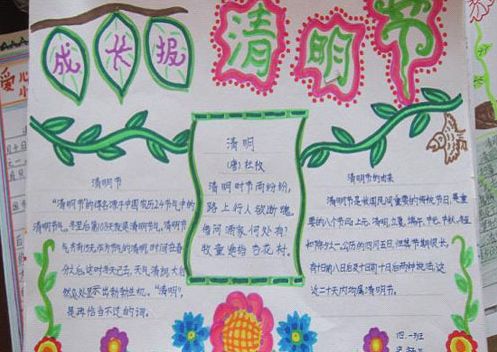 成长报
清明节
清明
(唐)杜牧
清明时节雨纷纷,
路上行人欲断魂。
借问酒家何处有?
牧童遥指杏花村。
清明节
“清明节的得名源于中国农历24节气中的
清明节气。冬至后第108天就是清明节气。清明节
气共有15天。作为节气的清明,时间在春
分之后。这时冬天已去,天气清朗,大自
然处处显示出勃勃生机。“清明”,
是再恰当不过的词。
清明节的由来
清明节是我国民间重要的传统节日,是重
要的八个节日上元、清明、立夏、端午、中元、中秋、冬至
和除夕之一。公历的四月五日,但其节期很长,
有十日前八日后及十日前十日后两种说法,这
近二十天内均属清明节。
四.一班
爱儿
小